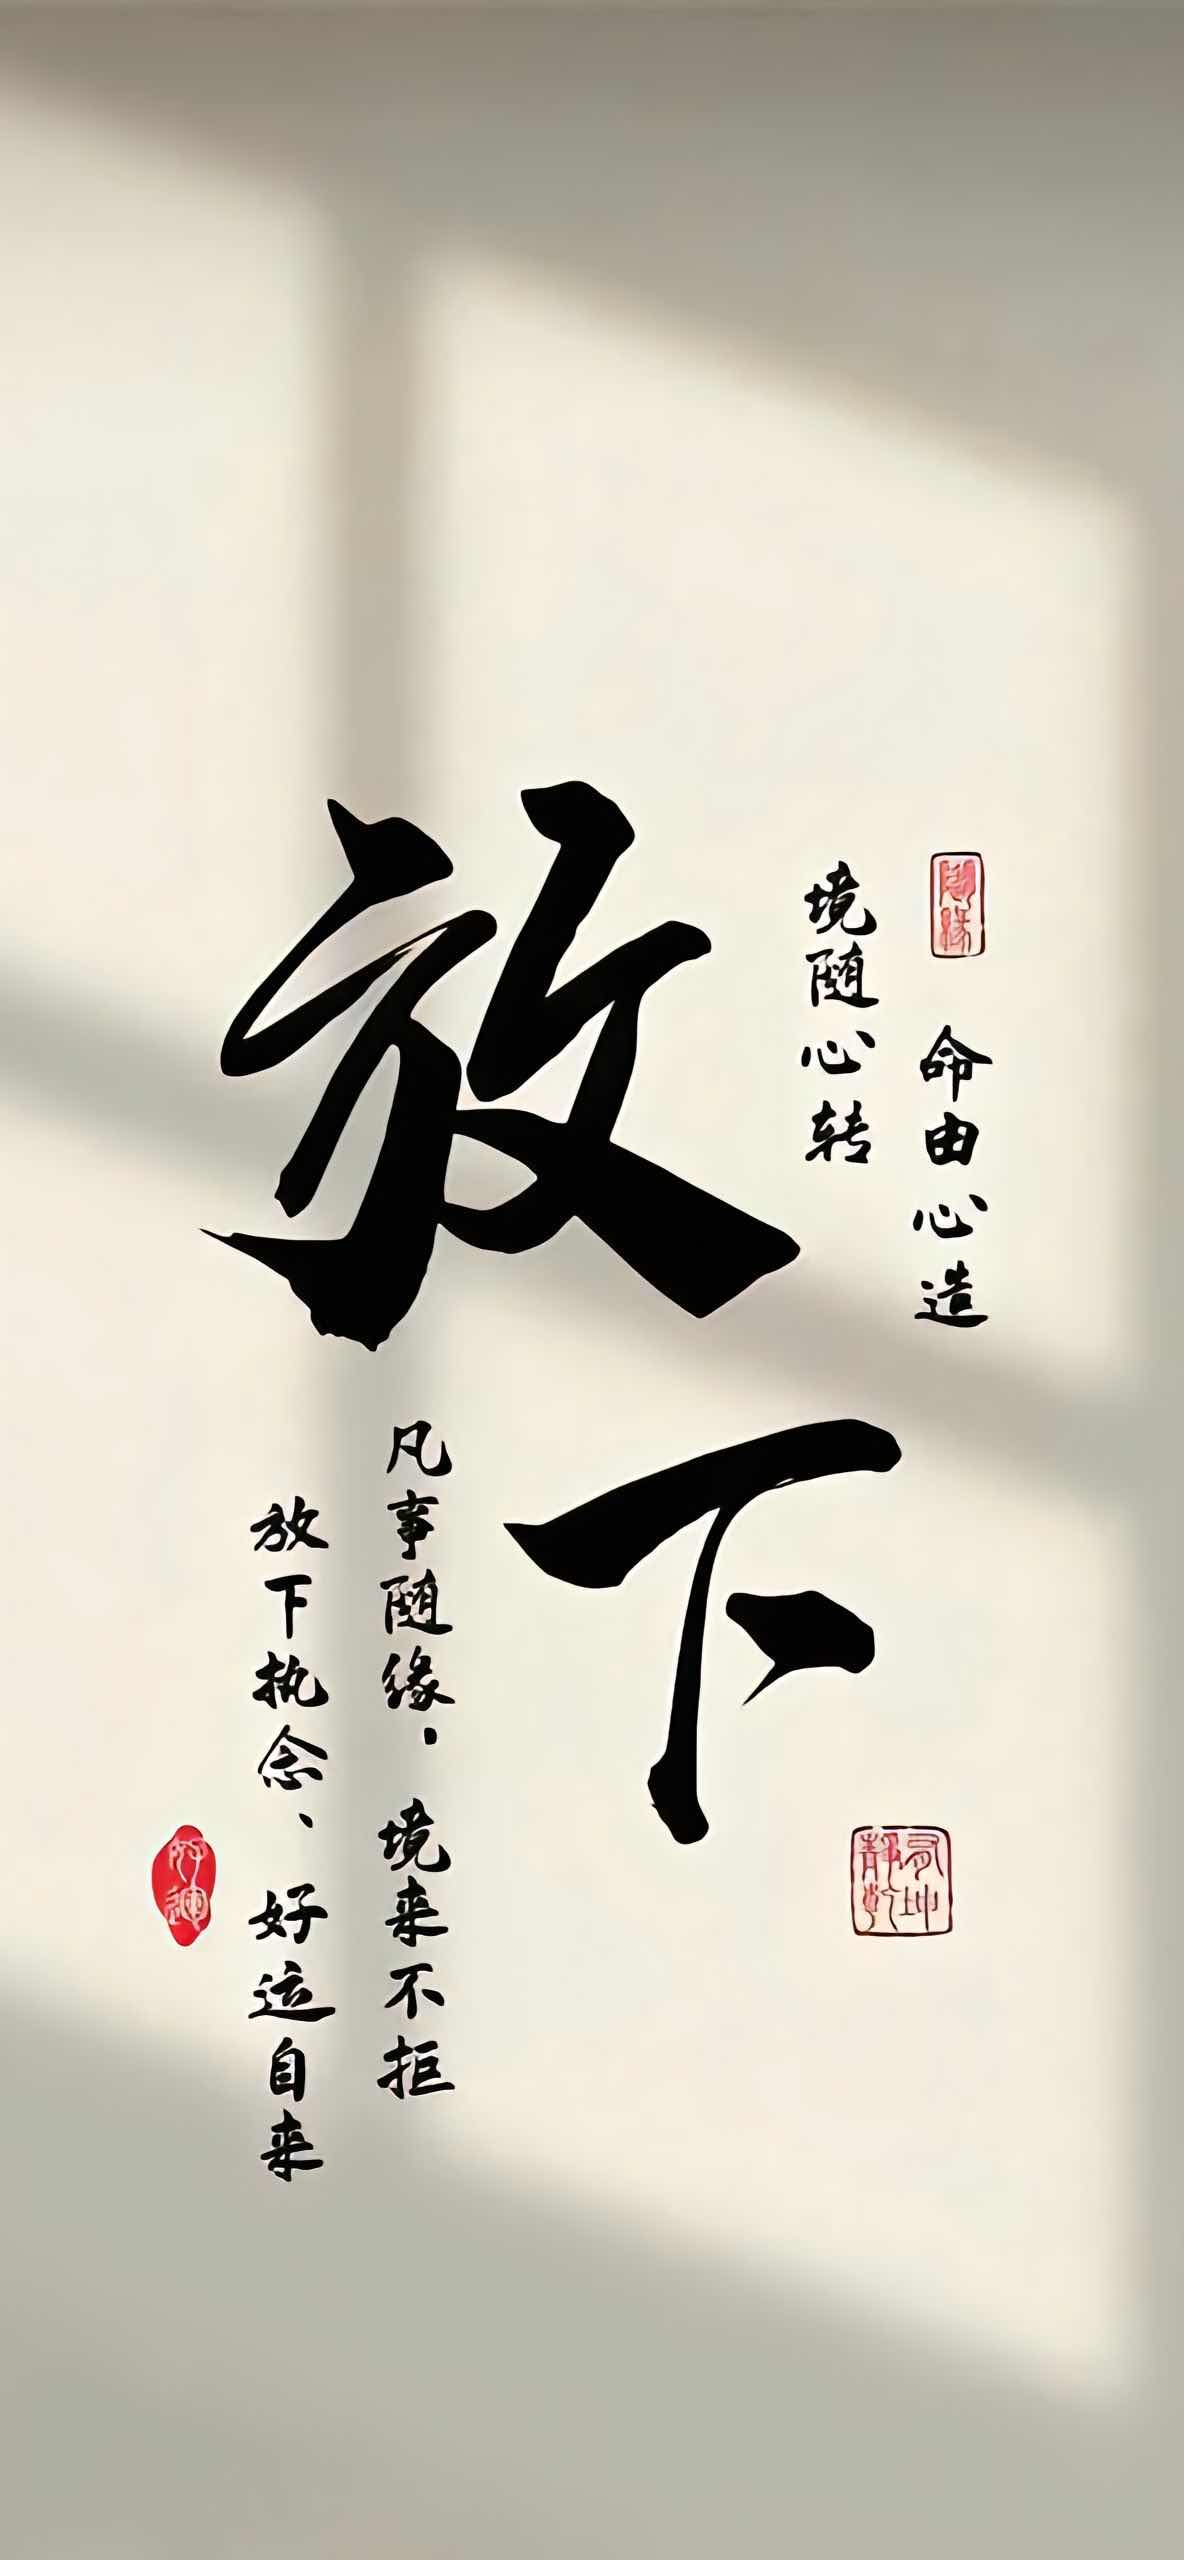 命由心造
境随心转
放下
凡事随缘，境来不拒
放下执念、好运自来
好运